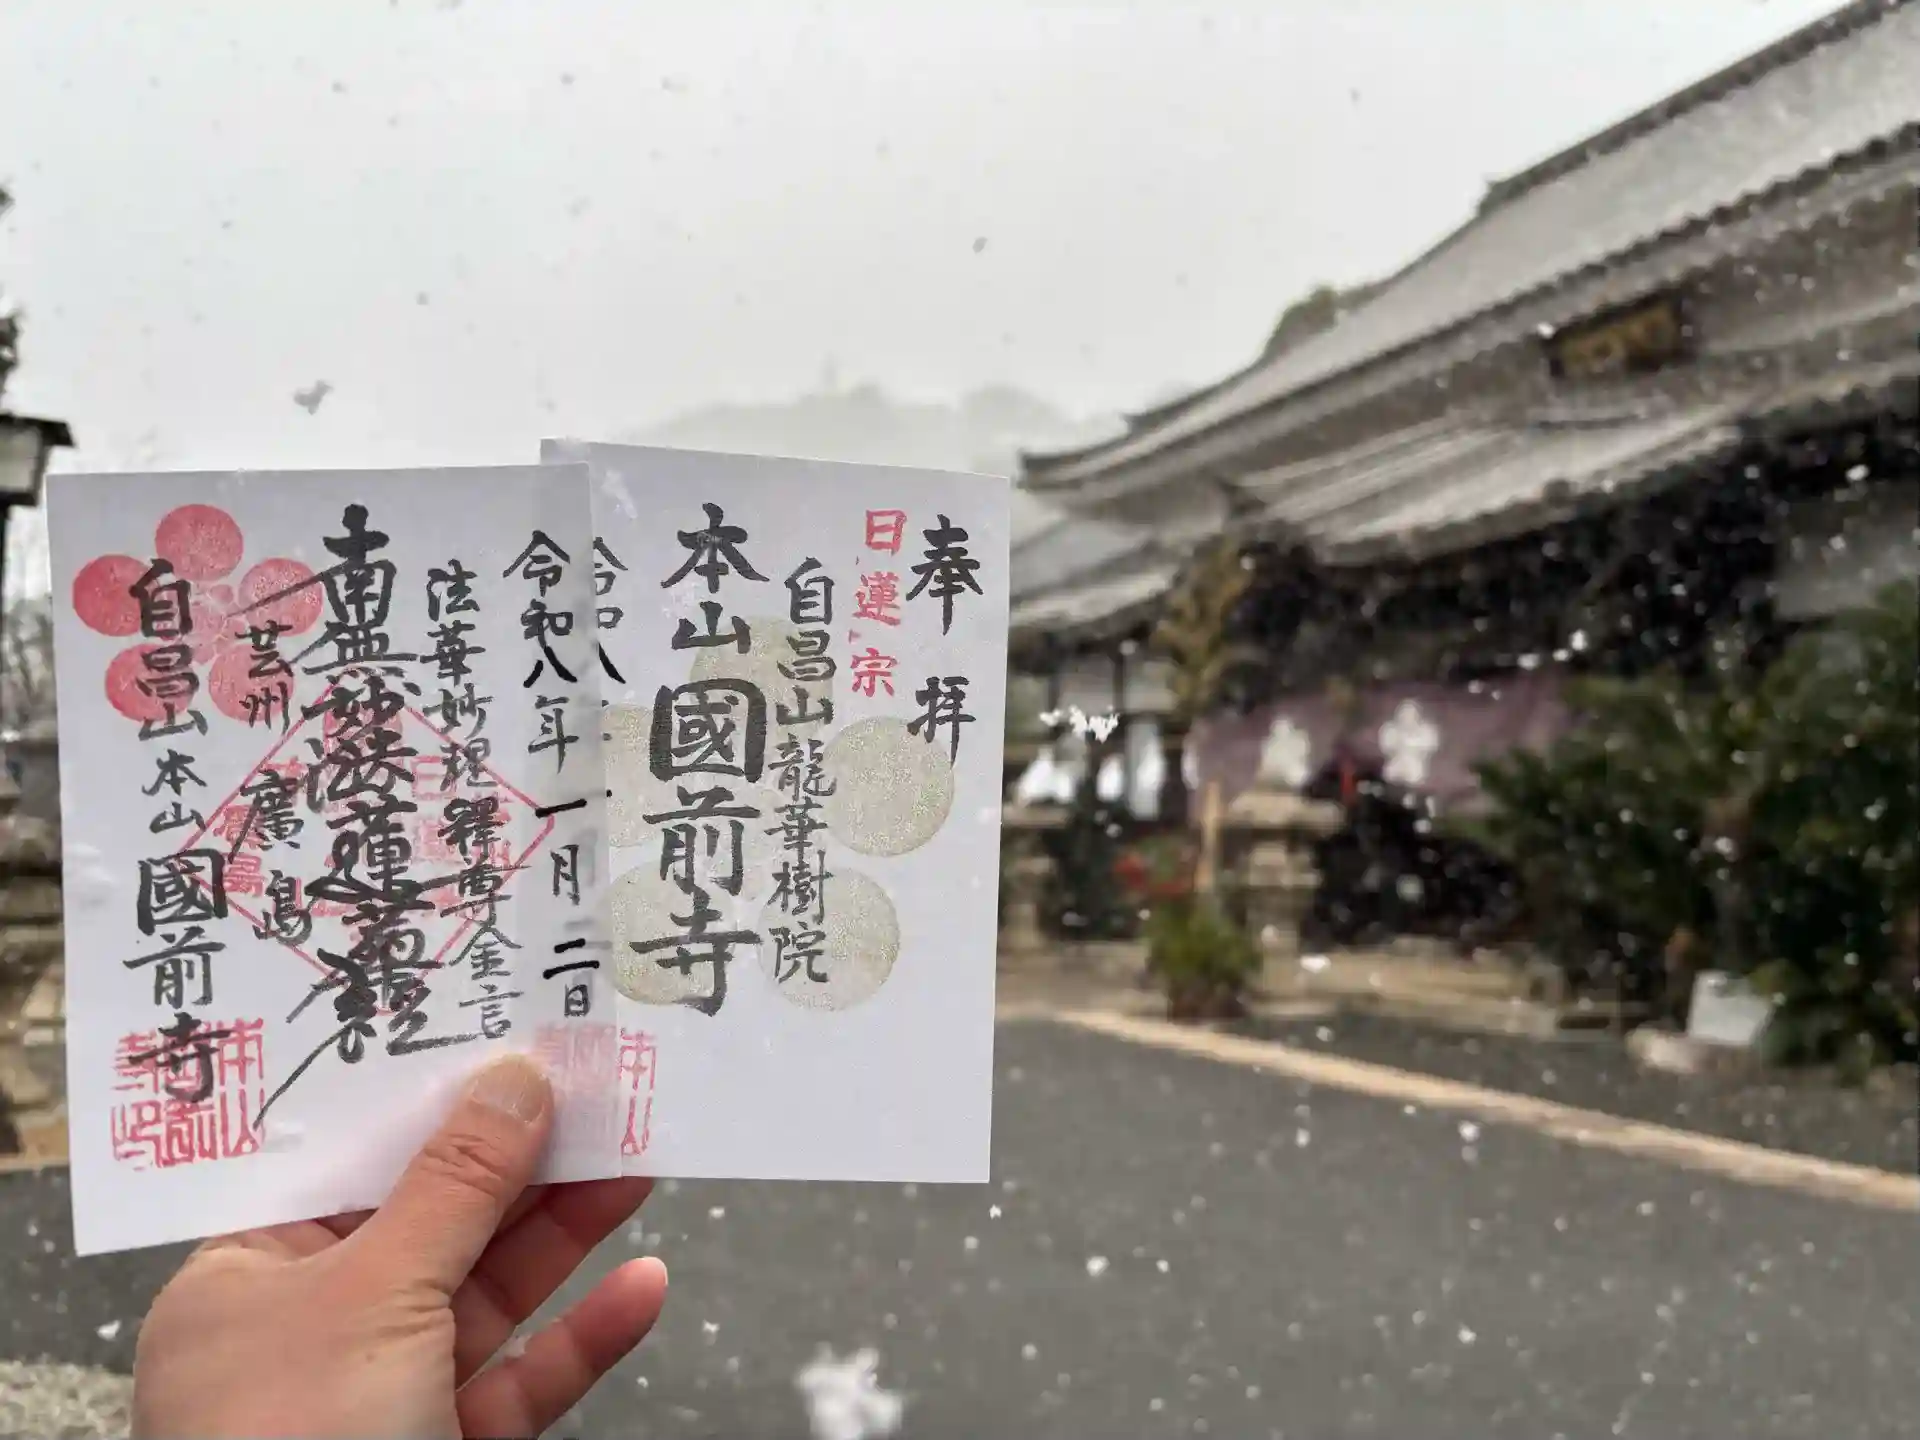 奉拝
日蓮宗
自昌山龍華樹院
本山國前寺
令和八
本山
令和八年一月二日
法華妙理釋尊金言
南無妙法蓮華経
芸州廣島
廣島
自昌山本山國前寺
本山國前寺印